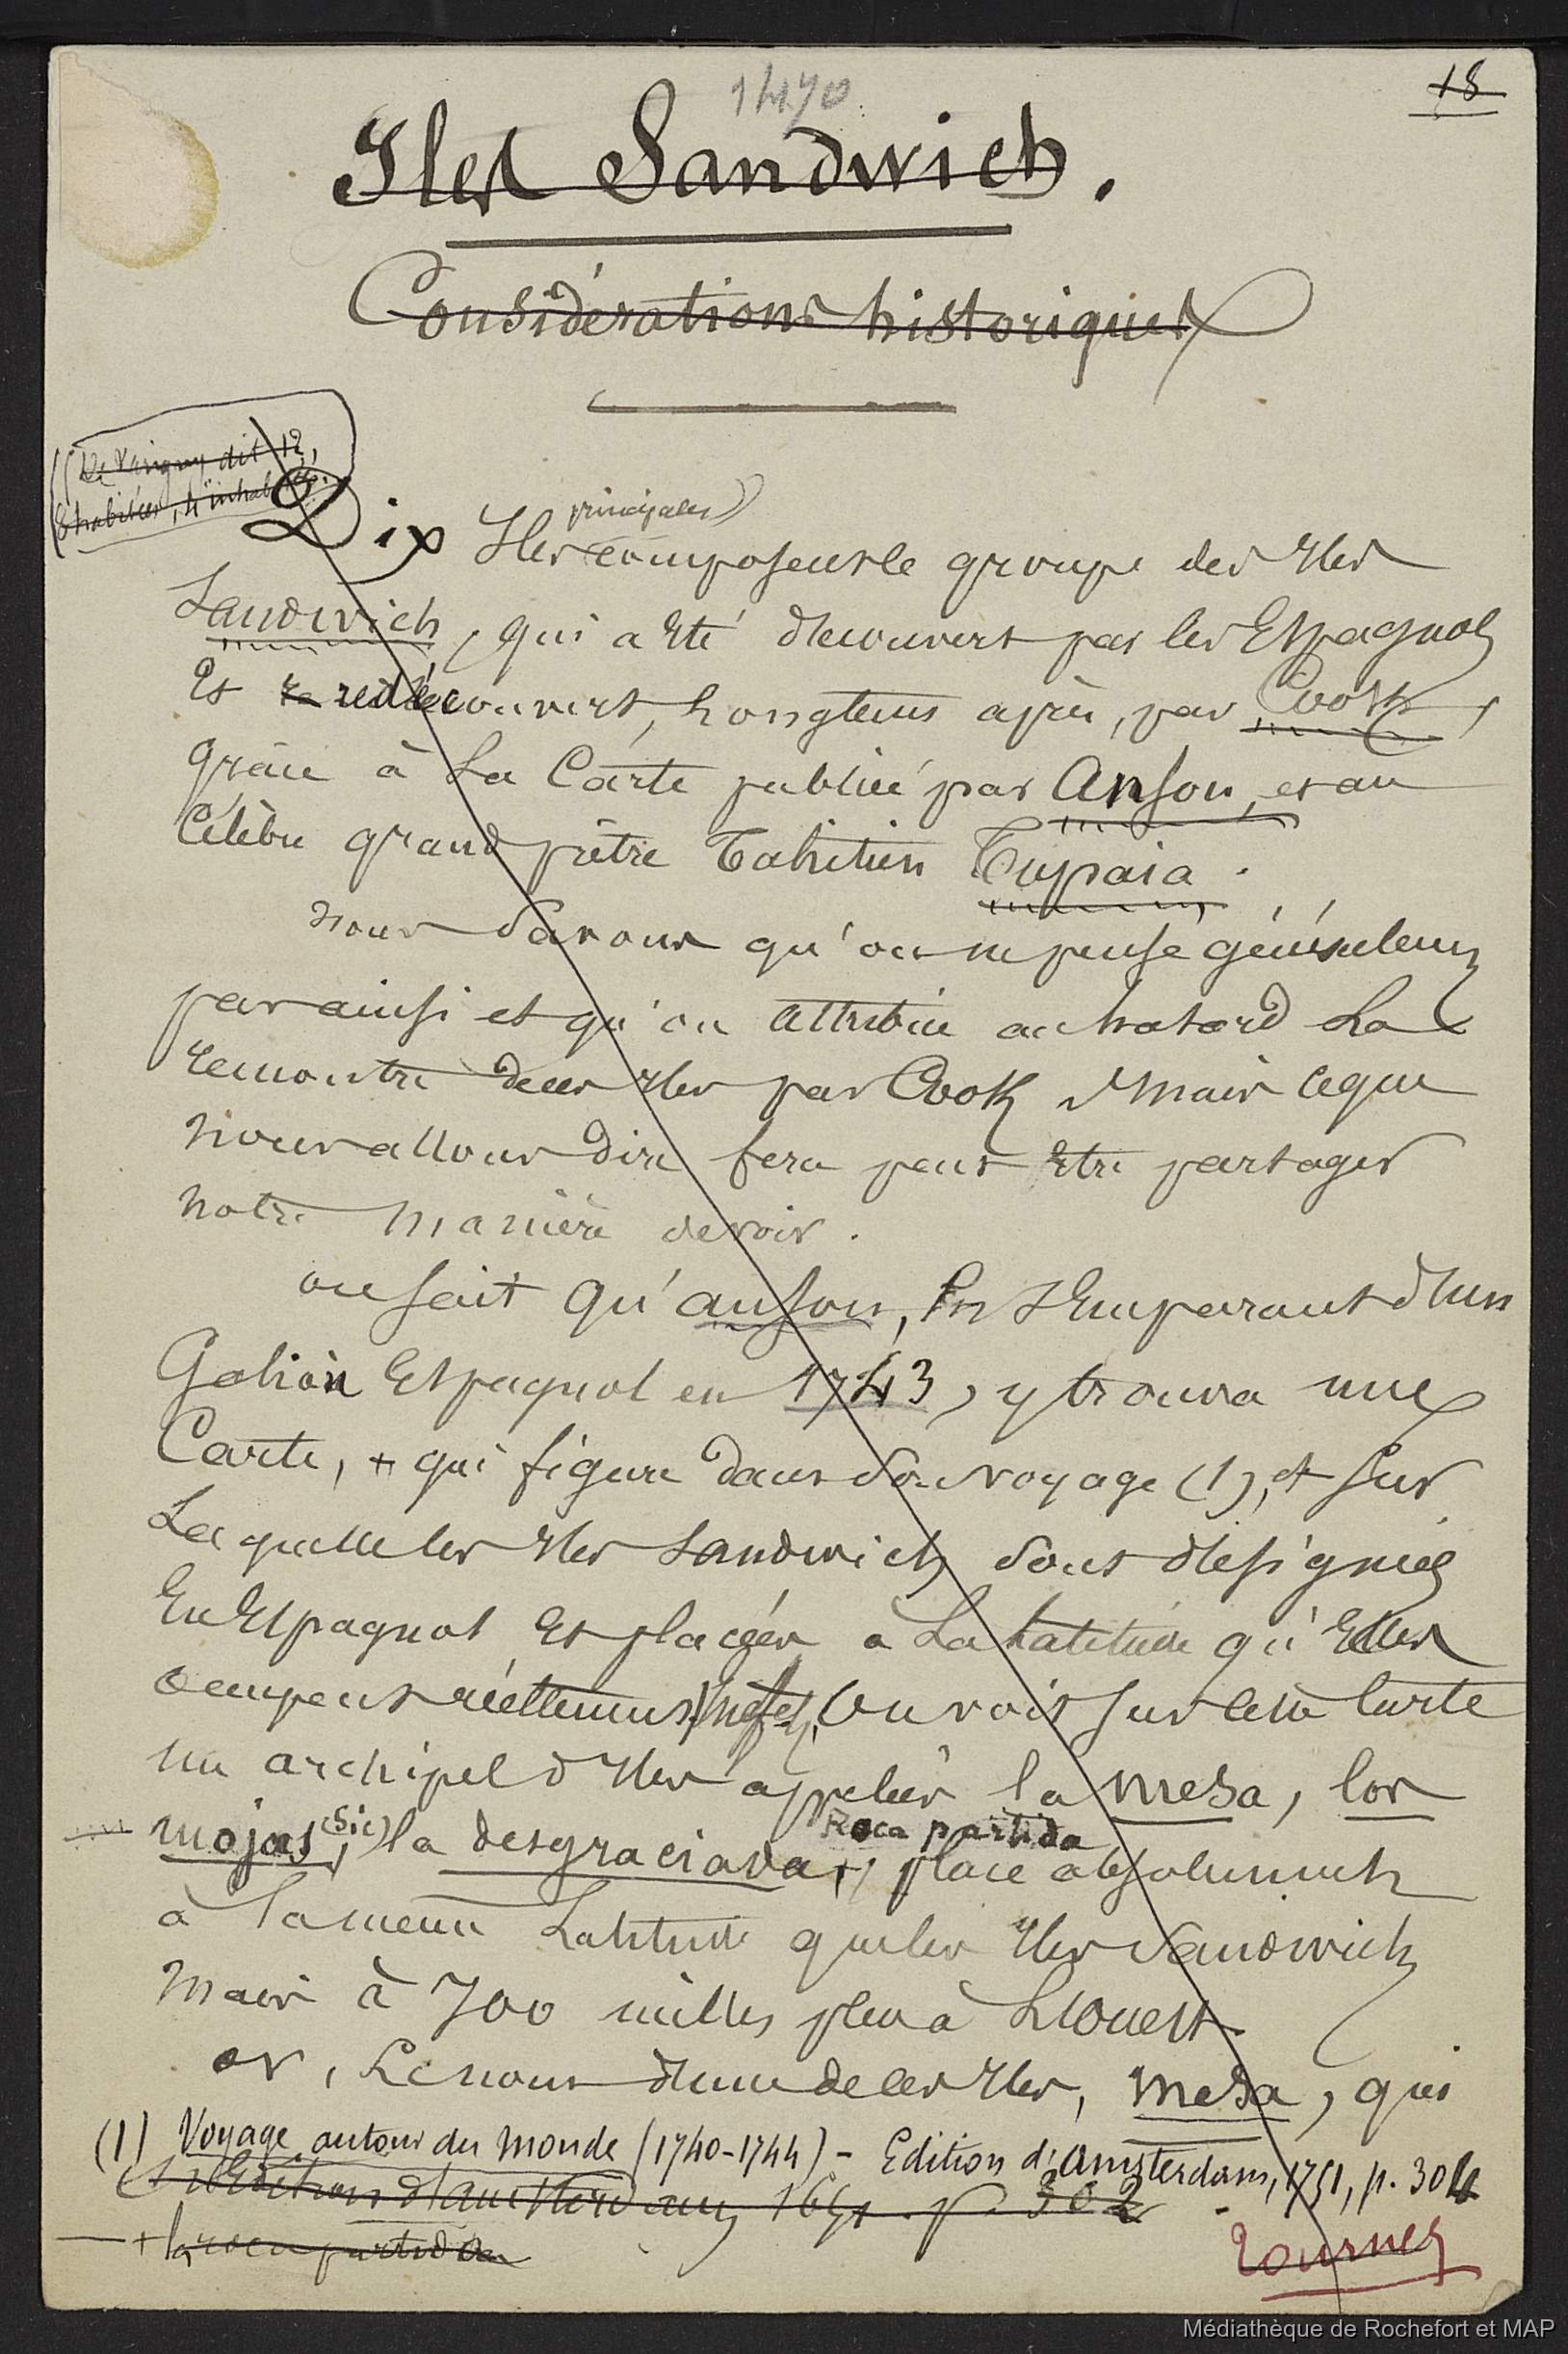 1470
18
Iles Sandwich.
Considérations historiques
(De Varigny dit 12,
8 habitées, 4 inhabitées.
principales)
Dix Iles composent le groupe des Iles
Sandwich, qui a été découvert par les Espagnols
et redécouvert, longtems après, par Cook,
grâce à la Carte publiée par Anson, et au
Célèbre grand prêtre Tahitien Tupaia.
nous savons qu'on ne pense généralement
pas ainsi et qu'on attribue au hasard la
rencontre de ces Iles par Cook, mais ce que
nous allons dire fera peut être partager
notre manière de voir.
on sait qu'anson, en s'emparant d'un
Galion Espagnol en 1743, y trouva une
Carte, + qui figure dans son voyage (1), et sur
laquelle les Iles Sandwich sont désignées
En Espagnol et placées à la latitude qu'Elles
occupent réellement. On voit sur cette Carte
un archipel d'Iles appelées la mesa, los
mojas (sic), la desgraciada +, place absolument
Roca partida
à la même Latitude que les Iles Sandwich
mais à 700 milles plus à L'Ouest.
or, le nom d'une de ces Iles, mesa, qui
(1) Voyage autour du Monde (1740-1744) - Edition d'Amsterdam, 1751, p. 304
Edition d'amsterdam 1651. p. 302
+ la roca partida
tournez
Médiathèque de Rochefort et MAP